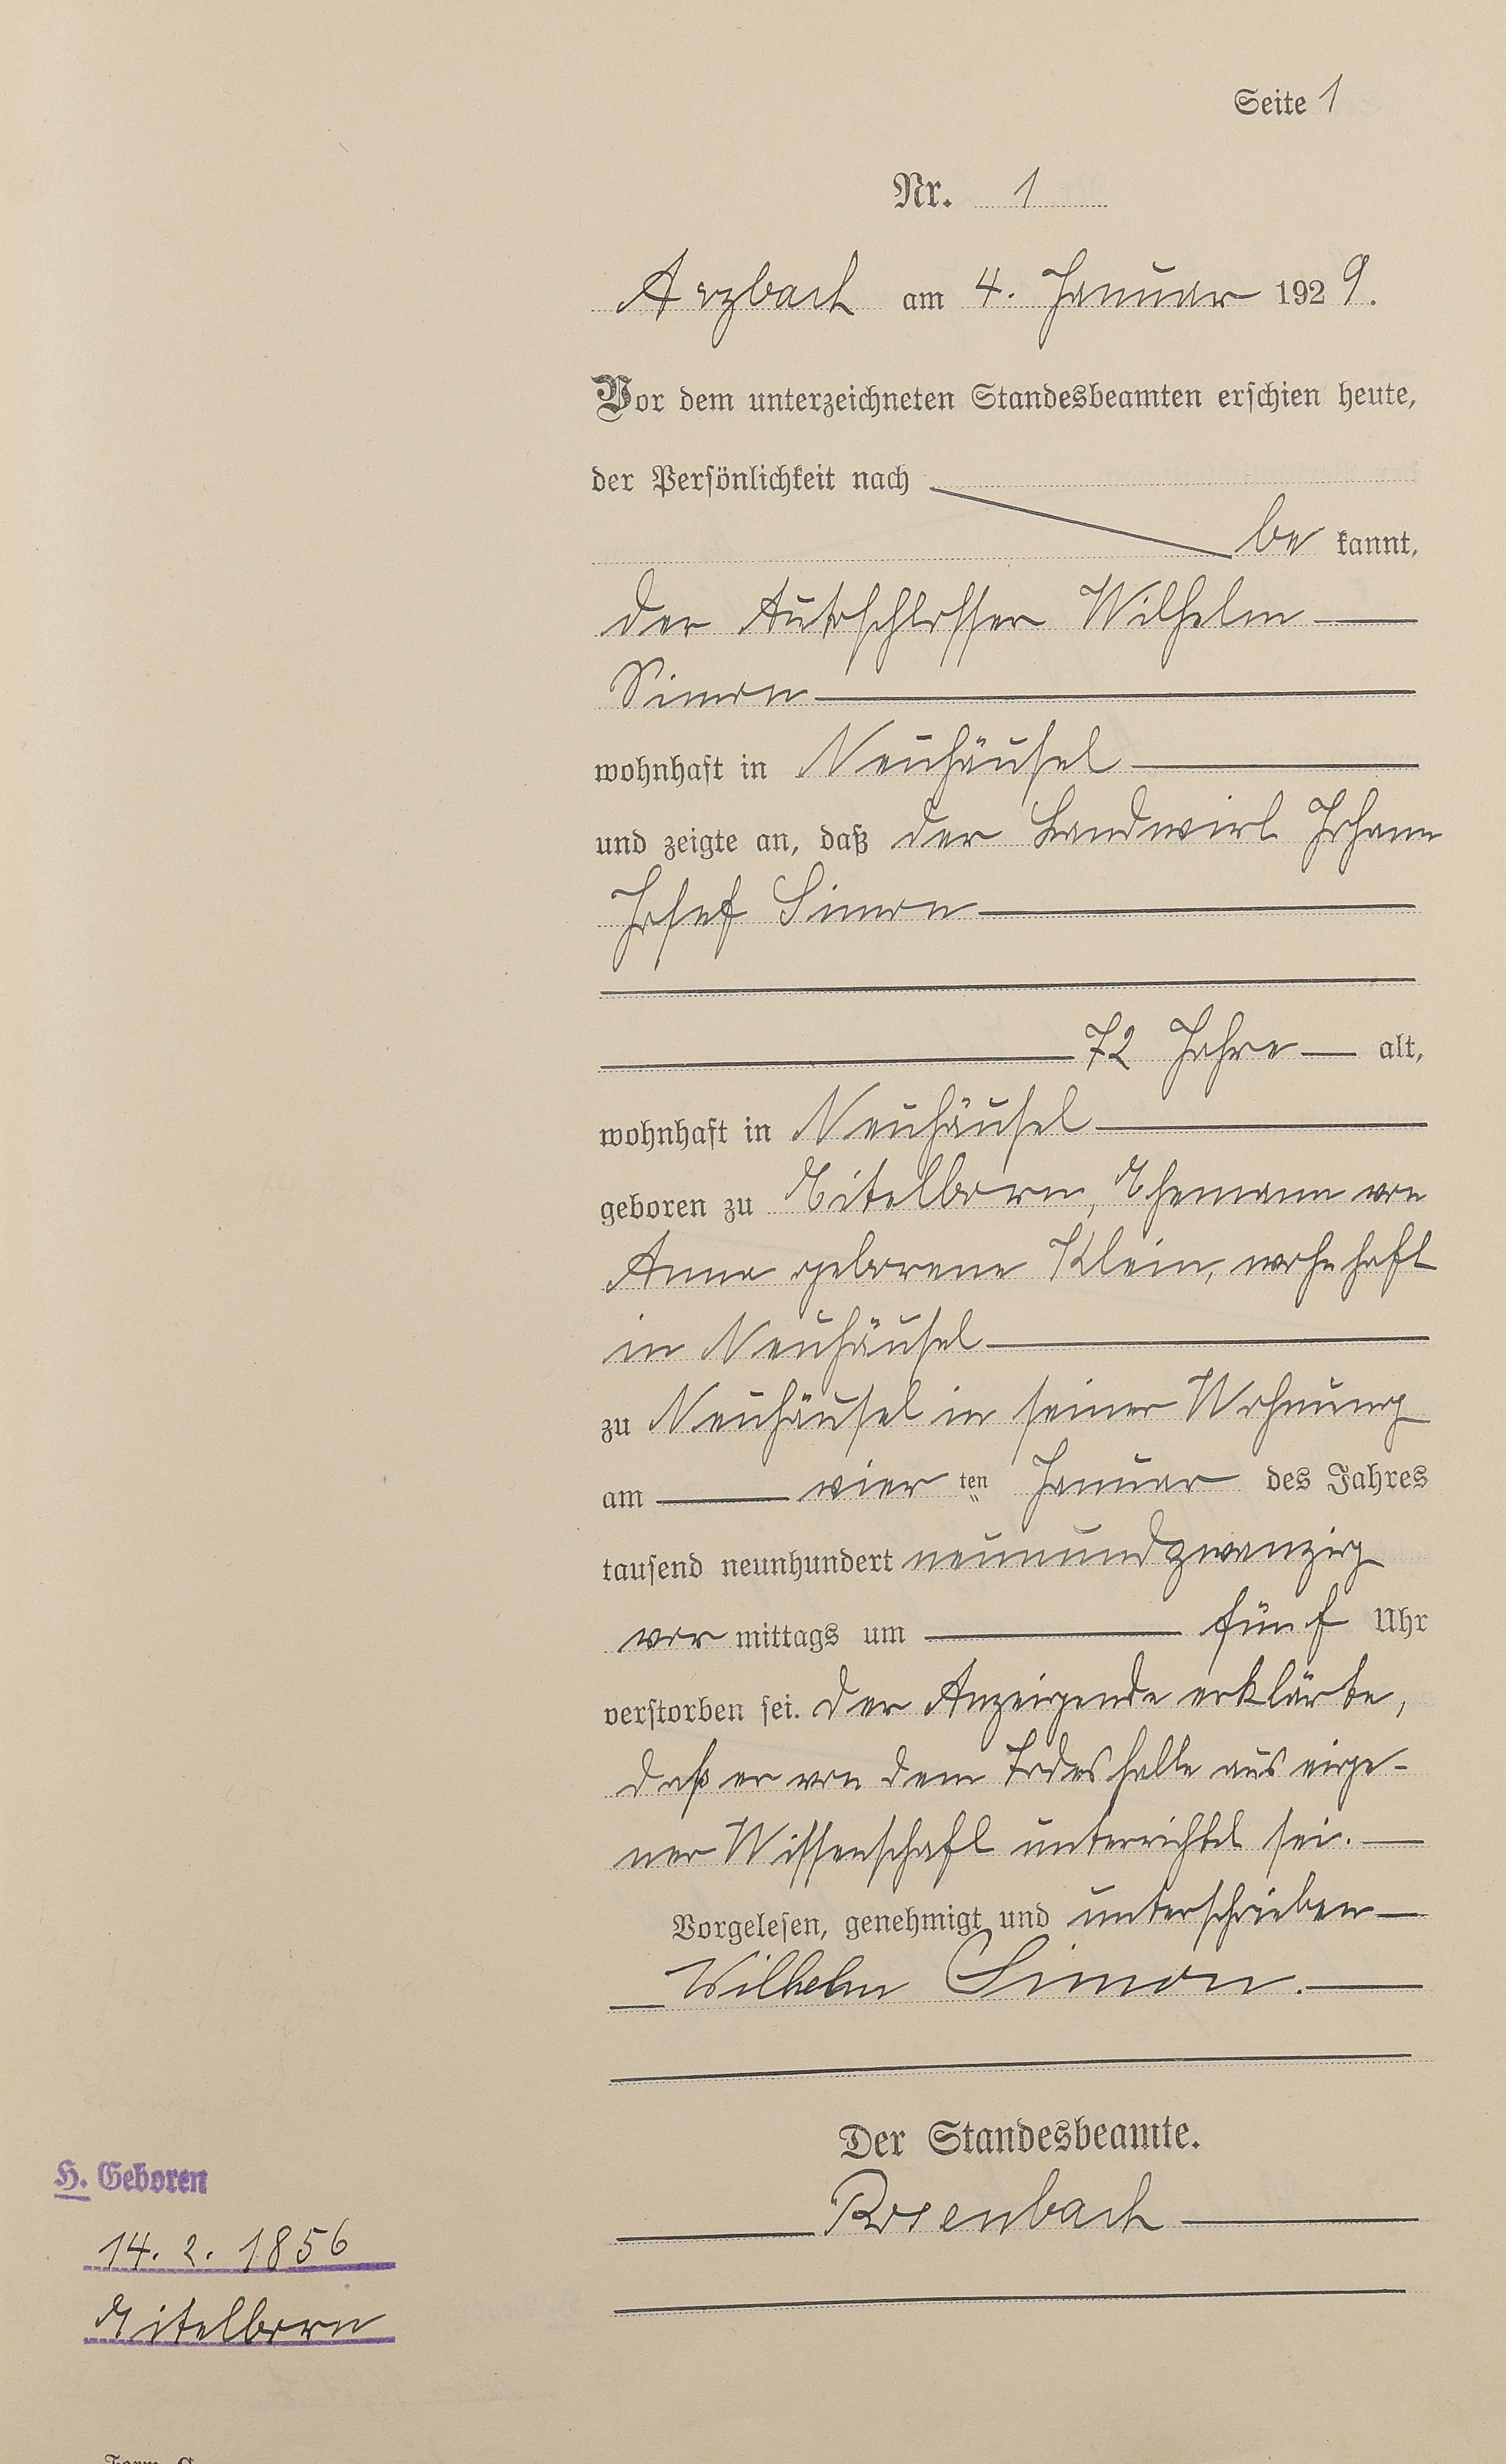 Seite 1
Nr. 1
Arzbach am 4. Januar 1929.
Vor dem unterzeichneten Standesbeamten erschien heute,
der Persönlichkeit nach
be kannt,
der Autoschlosser Wilhelm
Simon
wohnhaft in Neuhäusel
und zeigte an, daß der Landwirt Johann
Josef Simon
72 Jahre alt,
wohnhaft in Neuhäusel
geboren zu Eitelborn, Ehemann von
Anna geborene Klein, wohnhaft
in Neuhäusel
zu Neuhäusel in seiner Wohnung
am vier ten Januar des Jahres
tausend neunhundert neunundzwanzig
vor mittags um fünf Uhr
verstorben sei. Der Anzeigende erklärte,
daß er von dem Todesfalle aus eige-
ner Wissenschaft unterrichtet sei.
Vorgelesen, genehmigt und unterschrieben
Wilhelm Simon.
Der Standesbeamte.
Rosenbach
H. Geboren
14. 2. 1856
Eitelborn